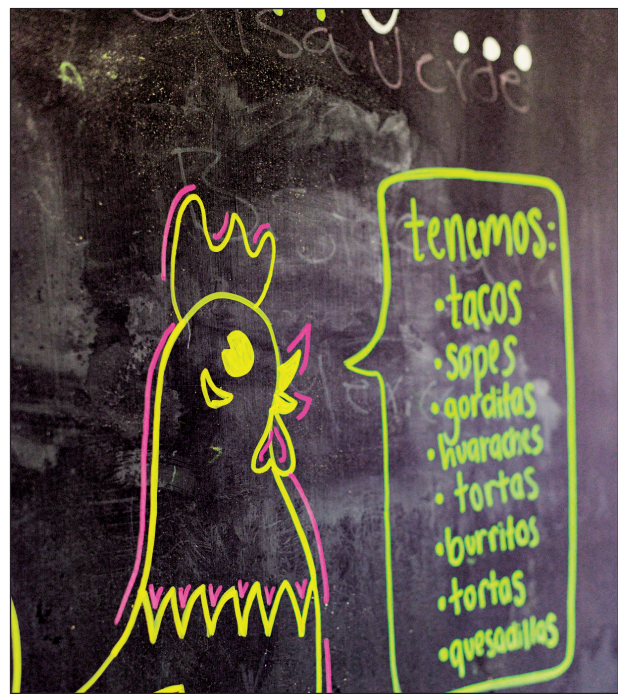 Salsa Verde
tenemos:
•tacos
•sopes
•gorditas
•huaraches
•tortas
•burritos
•tortas
•quesadillas